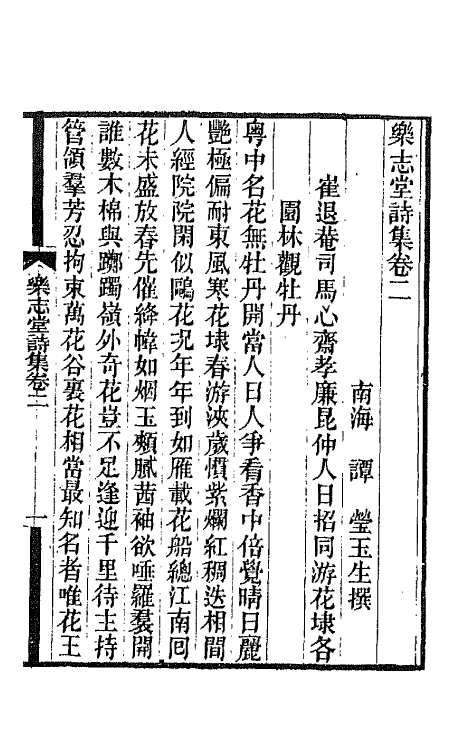 樂志堂詩集卷二
南海 譚 瑩玉生撰
崔退菴司馬心齋孝廉昆仲人日招同游花埭各
園林觀牡丹
粵中名花無牡丹開當人日人爭看香中倍覺晴日麗
艷極偏耐東風寒花埭春游浹歲慣紫爛紅稠迭相間
人經院院閑似鷗花況年年到如雁載花船總江南囘
花未盛放春先催絳幃如烟玉頰膩茜袖欲唾羅裠開
誰數木棉與躑躅嶺外奇花豈不足逢迎千里待主持
管領羣芳忍拘束萬花谷裏花相當最知名者唯花王
樂志堂詩集卷二
一